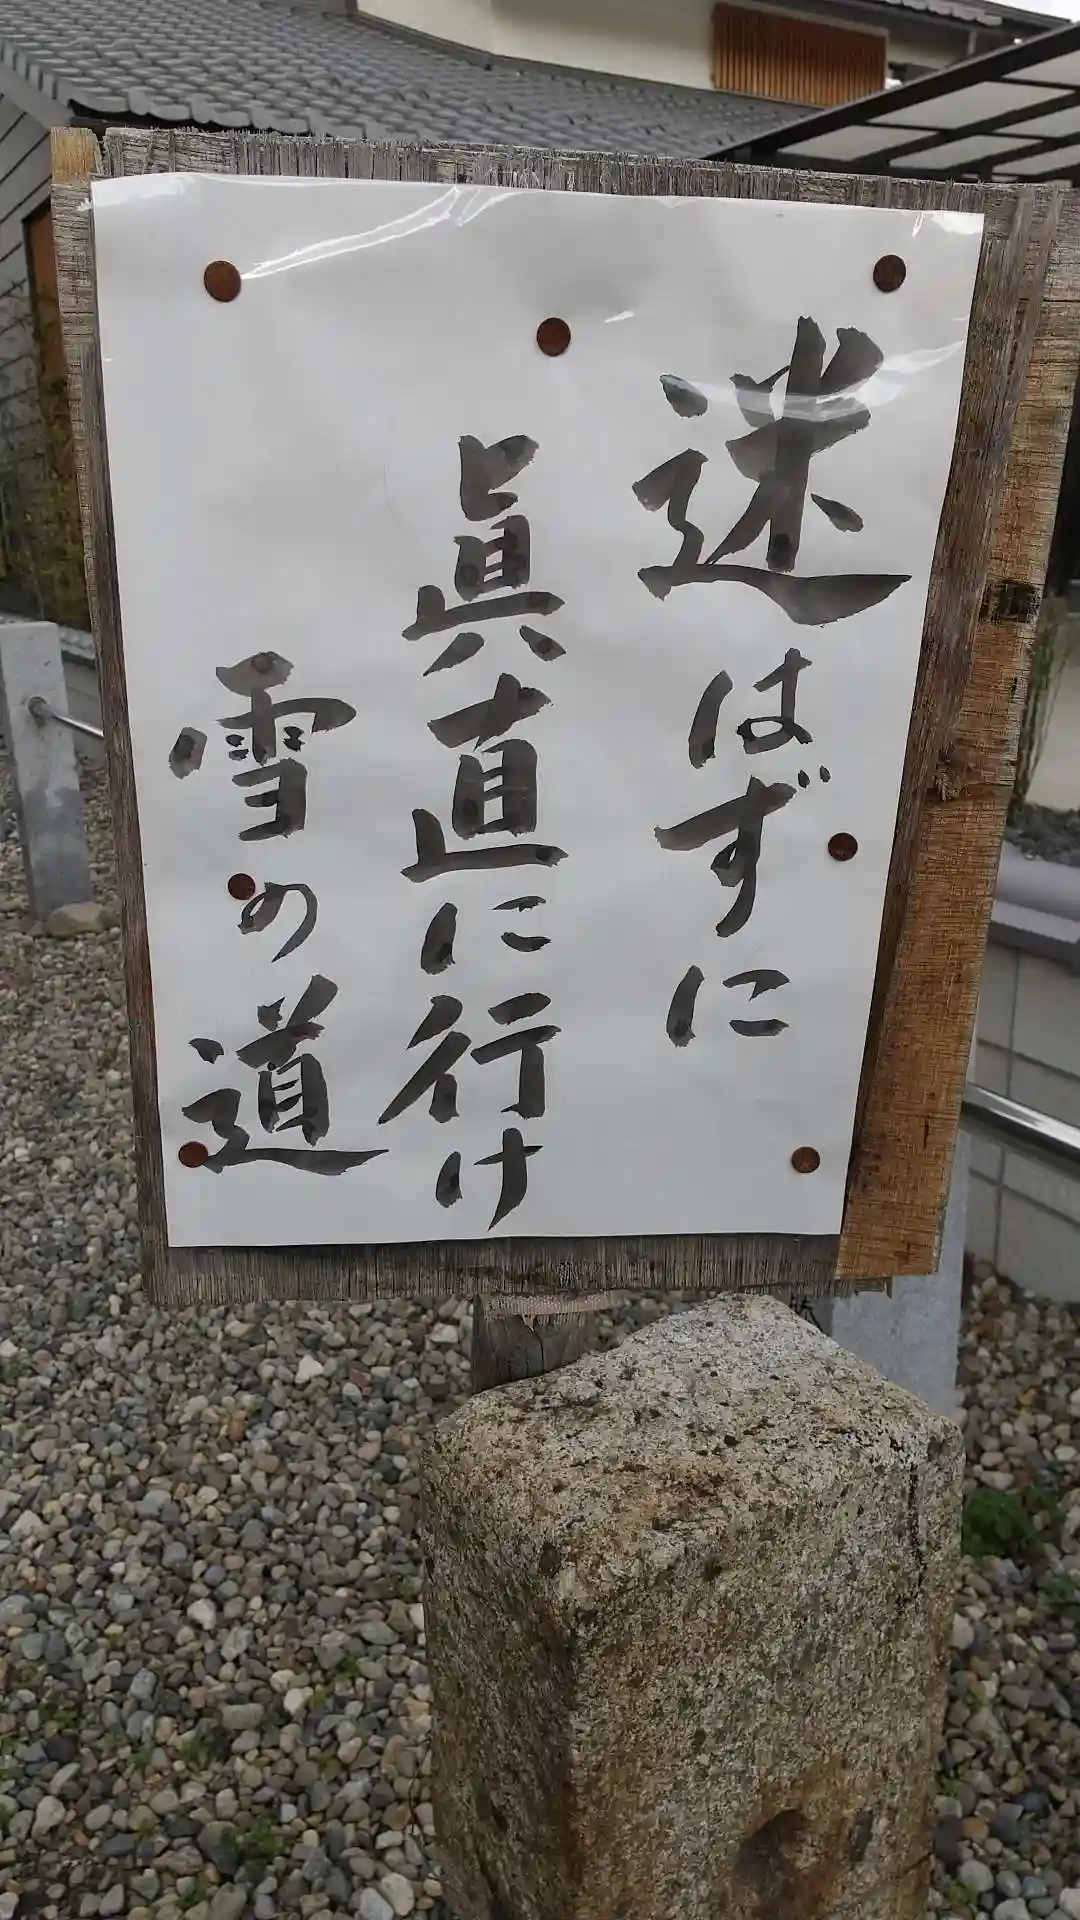 迷はずに
眞直に行け
雪の道